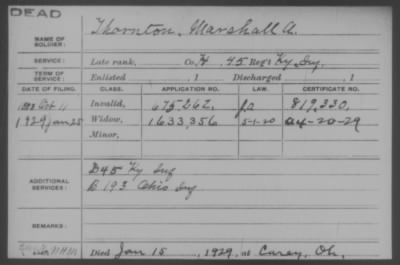 DEAD
NAME OF SOLDIER: Thornton, Marshall A.
SERVICE: Late rank, Co. H, 45 Reg't Ky. Inf.
TERM OF SERVICE: Enlisted , 1 Discharged , 1
DATE OF FILING. CLASS. APPLICATION NO. LAW. CERTIFICATE NO.
Oct 11 Invalid, 675,262. 819,330.
1929 Jan 25 Widow, 1,633,356 5-1-20 A4-20-29
Minor,
ADDITIONAL SERVICES: D 45 Ky Inf
B 193 Ohio Inf
REMARKS:
Died Jan 15, 1929, at Carey, Oh,